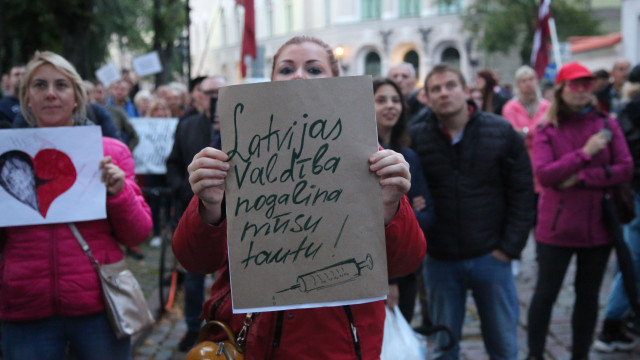 Latvijas
Valdība
nogalina
mūsu
tautu!